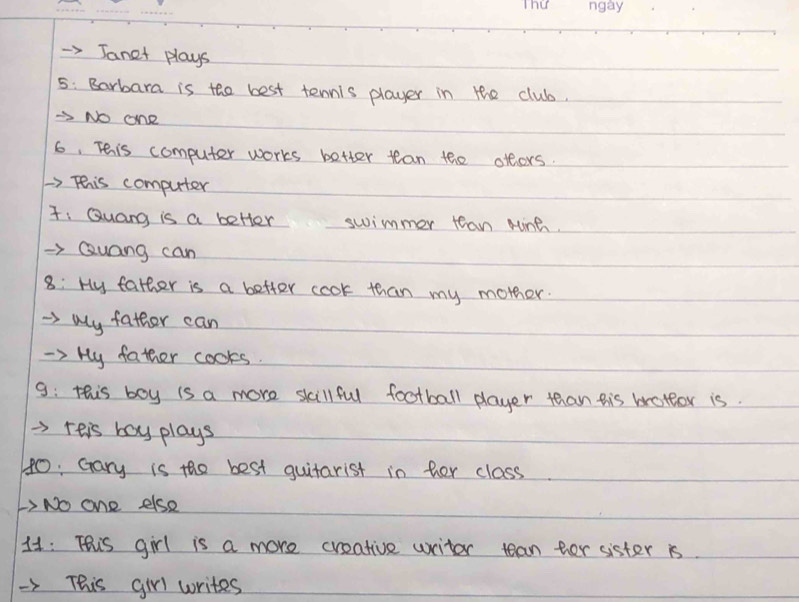 Thứ ngày
-> Janet plays
5: Barbara is the best tennis player in the club.
-> No one
6. This computer works better than the others.
-> This computer
7: Quang is a better swimmer than Minh.
-> Quang can
8: My father is a better cook than my mother.
-> My father can
-> My father cooks.
9: This boy is a more skillful football player than his brother is.
-> This boy plays
10: Gary is the best guitarist in her class.
-> No one else
11: This girl is a more creative writer than her sister is.
-> This girl writes